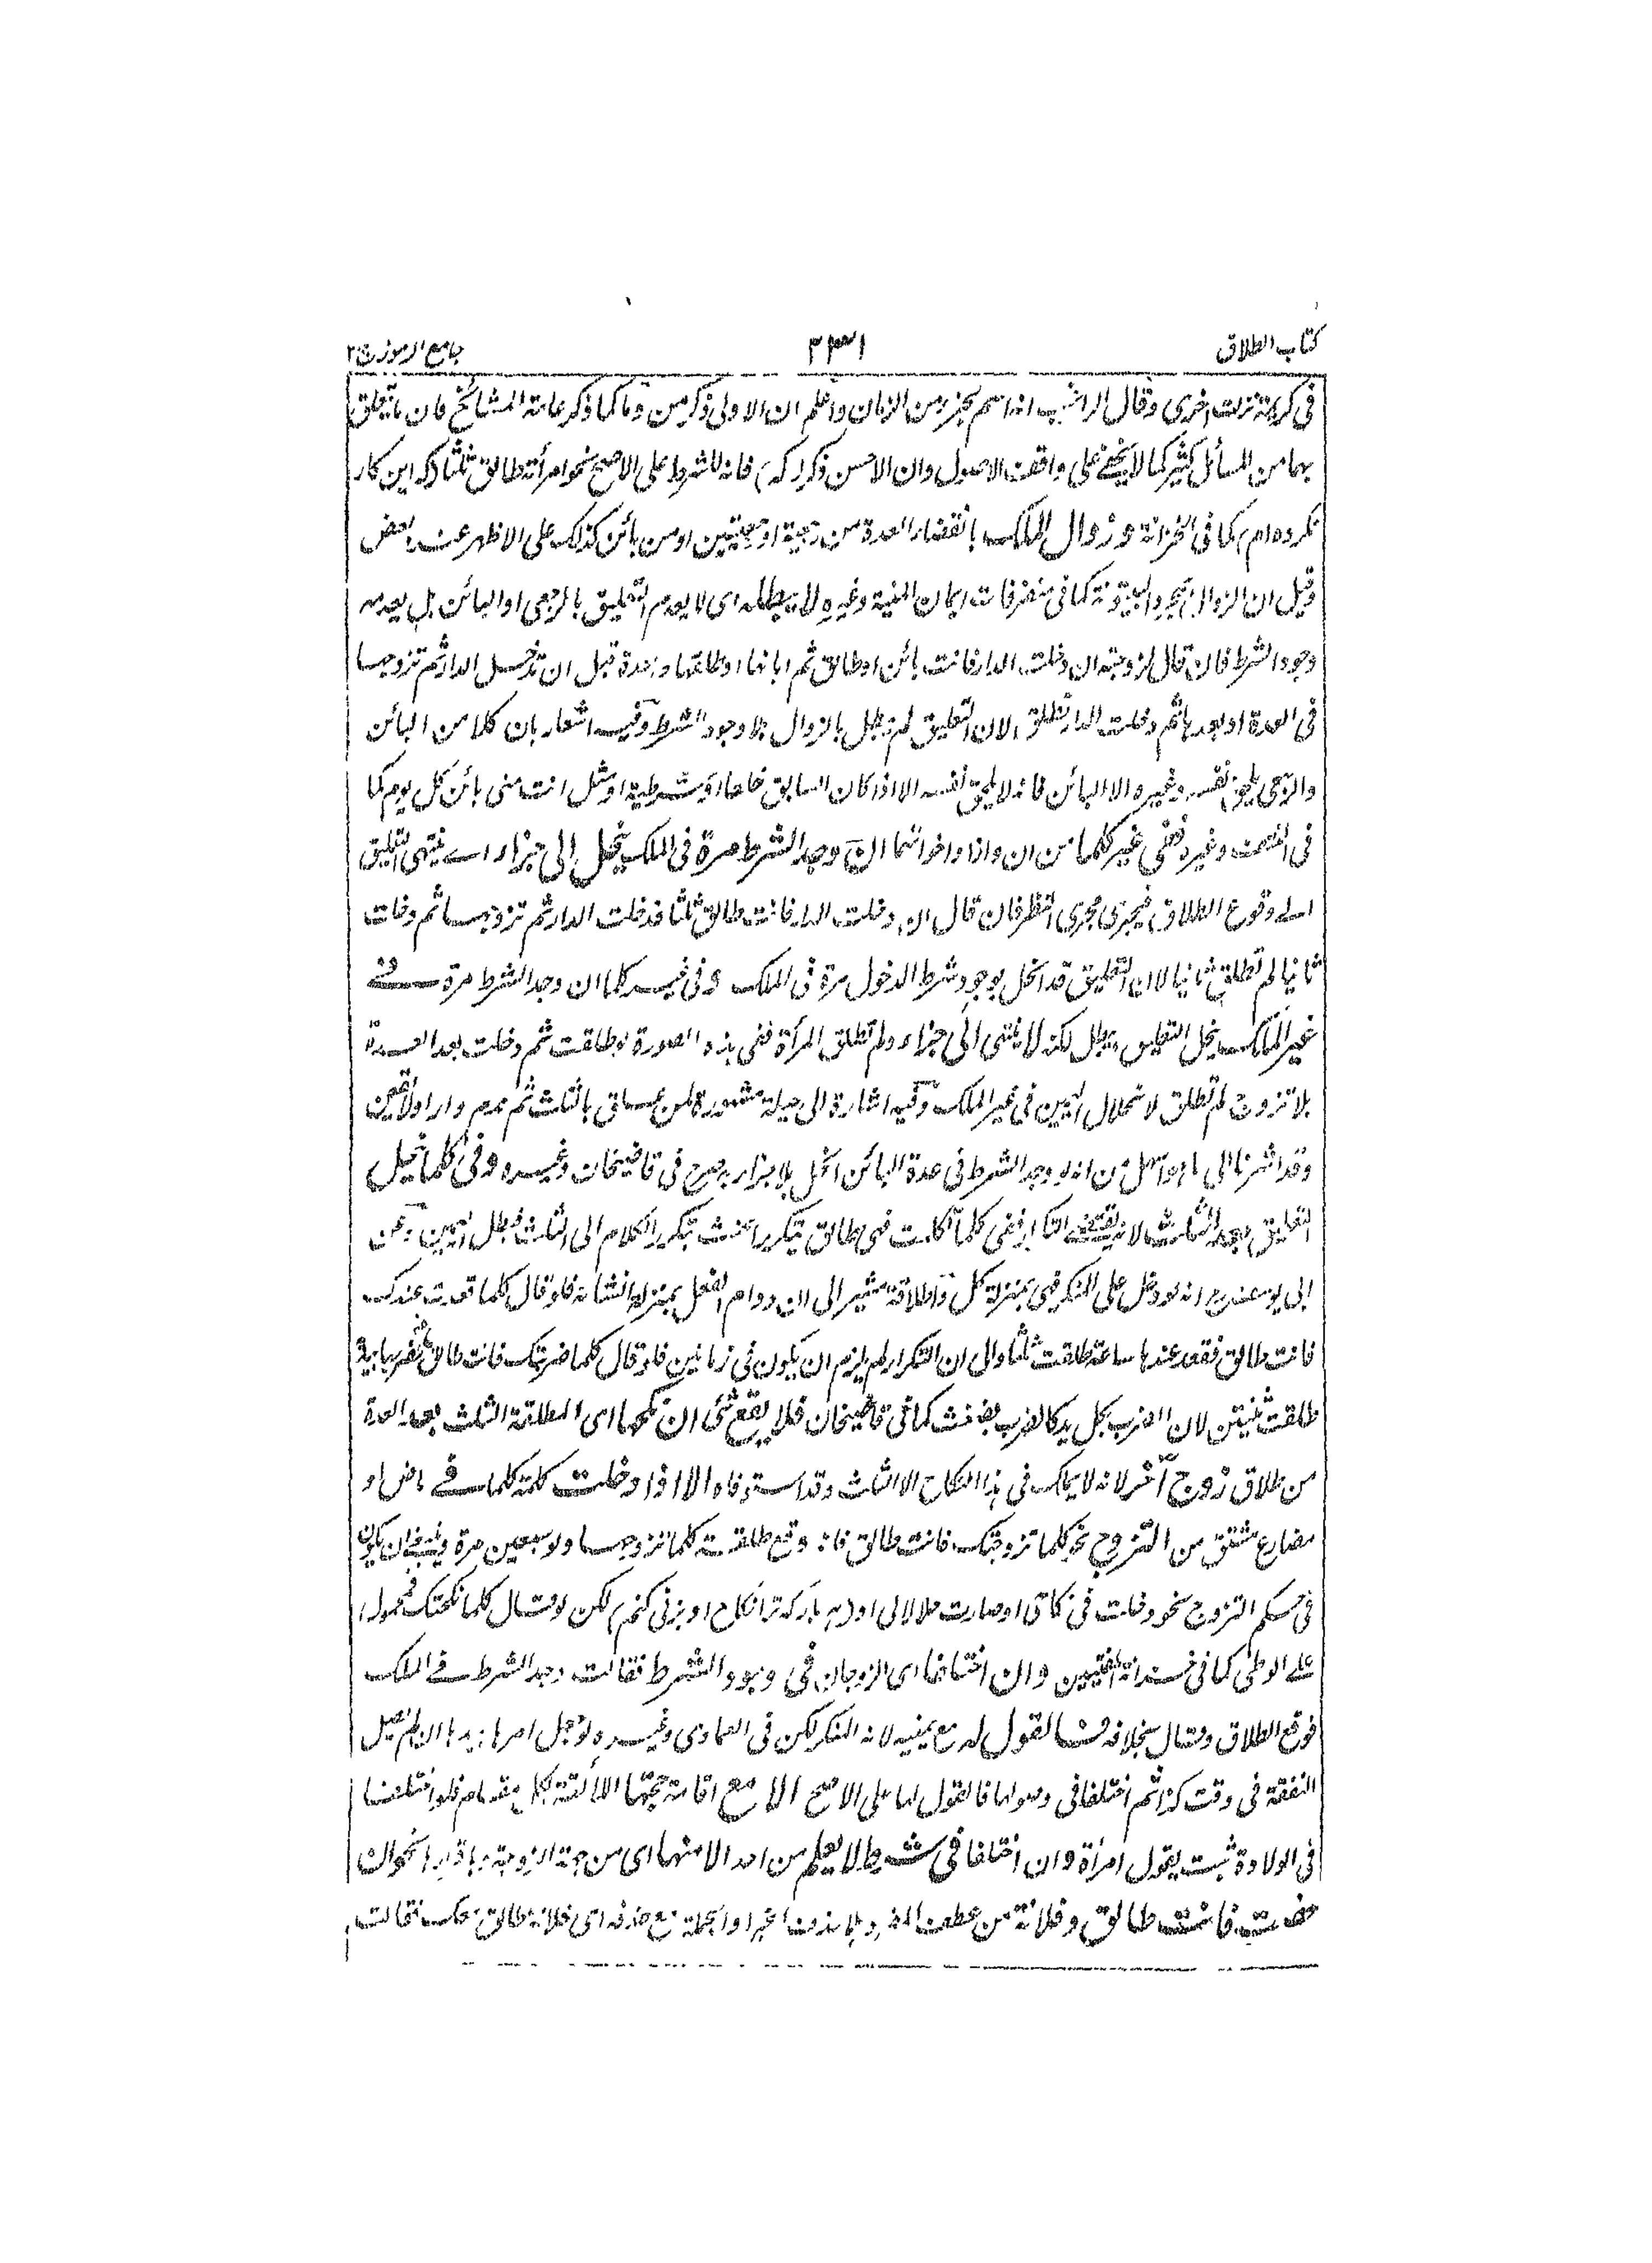 كتاب الطلاق
٣٣١
جامع الرموز ج٢
في كريمة نزلت اخرى وقال الراغب انه اسم لجزء من الزمان واعلم ان الاولى ذكر من وما كما ذكر عامة المشائخ فان ما يتعلق
بهما من المسائل كثير كما لا يخفى على واقف الاصول وان الاحسن ذكر (كه) فانه للشرط على الاصح نحو امرأته طالق ثلثا (كه اين كار
نكرده ام) كما في الخزانة وزوال الملك بانقضاء العدة من رجعية او رجعيتين او من بائن كذلك على الاظهر عند بعض
وقيل ان الزوال كما في متفرقات ايمان المنية وغيره لا يبطله اى لا يعدم التعليق بالرجعي او البائن بل يعدمه
وجود الشرط فان قال لزوجته ان دخلت الدار فانت بائن او طالق ثم ابانها او طلقها واحدة قبل ان تدخل الدار ثم تزوجها
في العدة او بعدها ثم دخلت الدار تطلق لان التعليق لم يبطل بالزوال بلا وجود الشرط وفيه اشعار بان كلا من البائن
والرجعي يلحق نفسه وغيره الا البائن فانه لا يلحق نفسه الا اذا كان السابق خلعا او شرطية او مثل انت مني بائن كل يوم كما
في وغيره ففي غير كلما من ان واذا واخواتهما ان وجد الشرط مرة في الملك ينحل الى جزاء اے ينتهى التعليق
الى وقوع الطلاق فيجرى مجرى الظرف فان قال ان دخلت الدار فانت طالق ثلثا فدخلت الدار ثم تزوجها ثم دخلت
ثانيا لم تطلق ثانيا لان التعليق قد انحل بوجود شرط الدخول مرة في الملك وفي غير كلما ان وجد الشرط مرة في
غير الملك ينحل التعليق ويبطل لكنه لا ينتهى الى جزاء ولم تطلق المرأة ففي هذه الصورة لو طلقت ثم دخلت بعد العدة
بلا تزوج لم تطلق لانحلال اليمين في غير الملك وفيه اشارة الى حيلة مشهورة لمن علق بالثلث ثم ندم واراد
وقد اشرنا الى ما هو اسهل من انه لو وجد الشرط في عدة البائن انحل بلا جزاء به صرح في قاضيخان وغيره وفي كلما ينحل
التعليق بعد الثلث لانه يقتضي التكرار ففي كلما كلمت فهي طالق يتكرر الحنث بتكرر الكلام الى الثلث فبطل اليمين وعن
ابي يوسف رح انه لو دخل على المنكر فهي بمنزلة كل واطلاقه مشير الى ان دوام الفعل بمنزلة انشائه فلو قال كلما قعدت عندك
فانت طالق فقعد عندها ساعة طلقت ثلثا والى ان التكرار لم يلزم ان يكون في زمانين فلو قال كلما ضربتك فانت طالق فضربها بيديه
طلقت ثنتين لان الضرب بكل يد كالضرب بضغث كما في قاضيخان فلا يقع شئ ان نكحها اى المطلقة الثلث بعد العدة
من طلاق زوج آخر لانه لا يملك في هذا النكاح الا الثلث وقد استوفاه الا اذا دخلت كلمة كلما في ماض او
مضارع مشتق من التزوج نحو كلما تزوجتك فانت طالق فانه وقع طلقت كلما تزوجها ولو سبعين مرة وينبغي ان يكون
في حكم التزوج نحو دخلت في نكاحي او صارت حلالا لي او (هر بار كه ترا نكاح او بزني كنم) لكن لو قال كلما نكحتك فمحمول
على الوطئ كما في خزانة المفتيين وان اختلفا اى الزوجان في وجود الشرط فقالت وجد الشرط في الملك
فوقع الطلاق وقال بخلافه فالقول له مع يمينه لانه المنكر لكن في العمادى وغيره لو جعل امرها بيدها ان لم تصل
النفقة في وقت كذا ثم اختلفا في وصولها فالقول لها على الاصح الا مع اقامة حجتها فلو اختلفا
في الولادة ثبت بقول امرأة وان اختلفا في شرط لا يعلم من احد الا منها اى من جهة الزوجة نحو ان
حضت فانت طالق وفلانة من عطف او الجملة مع حذفه اى فلانة طالق معك فقالت